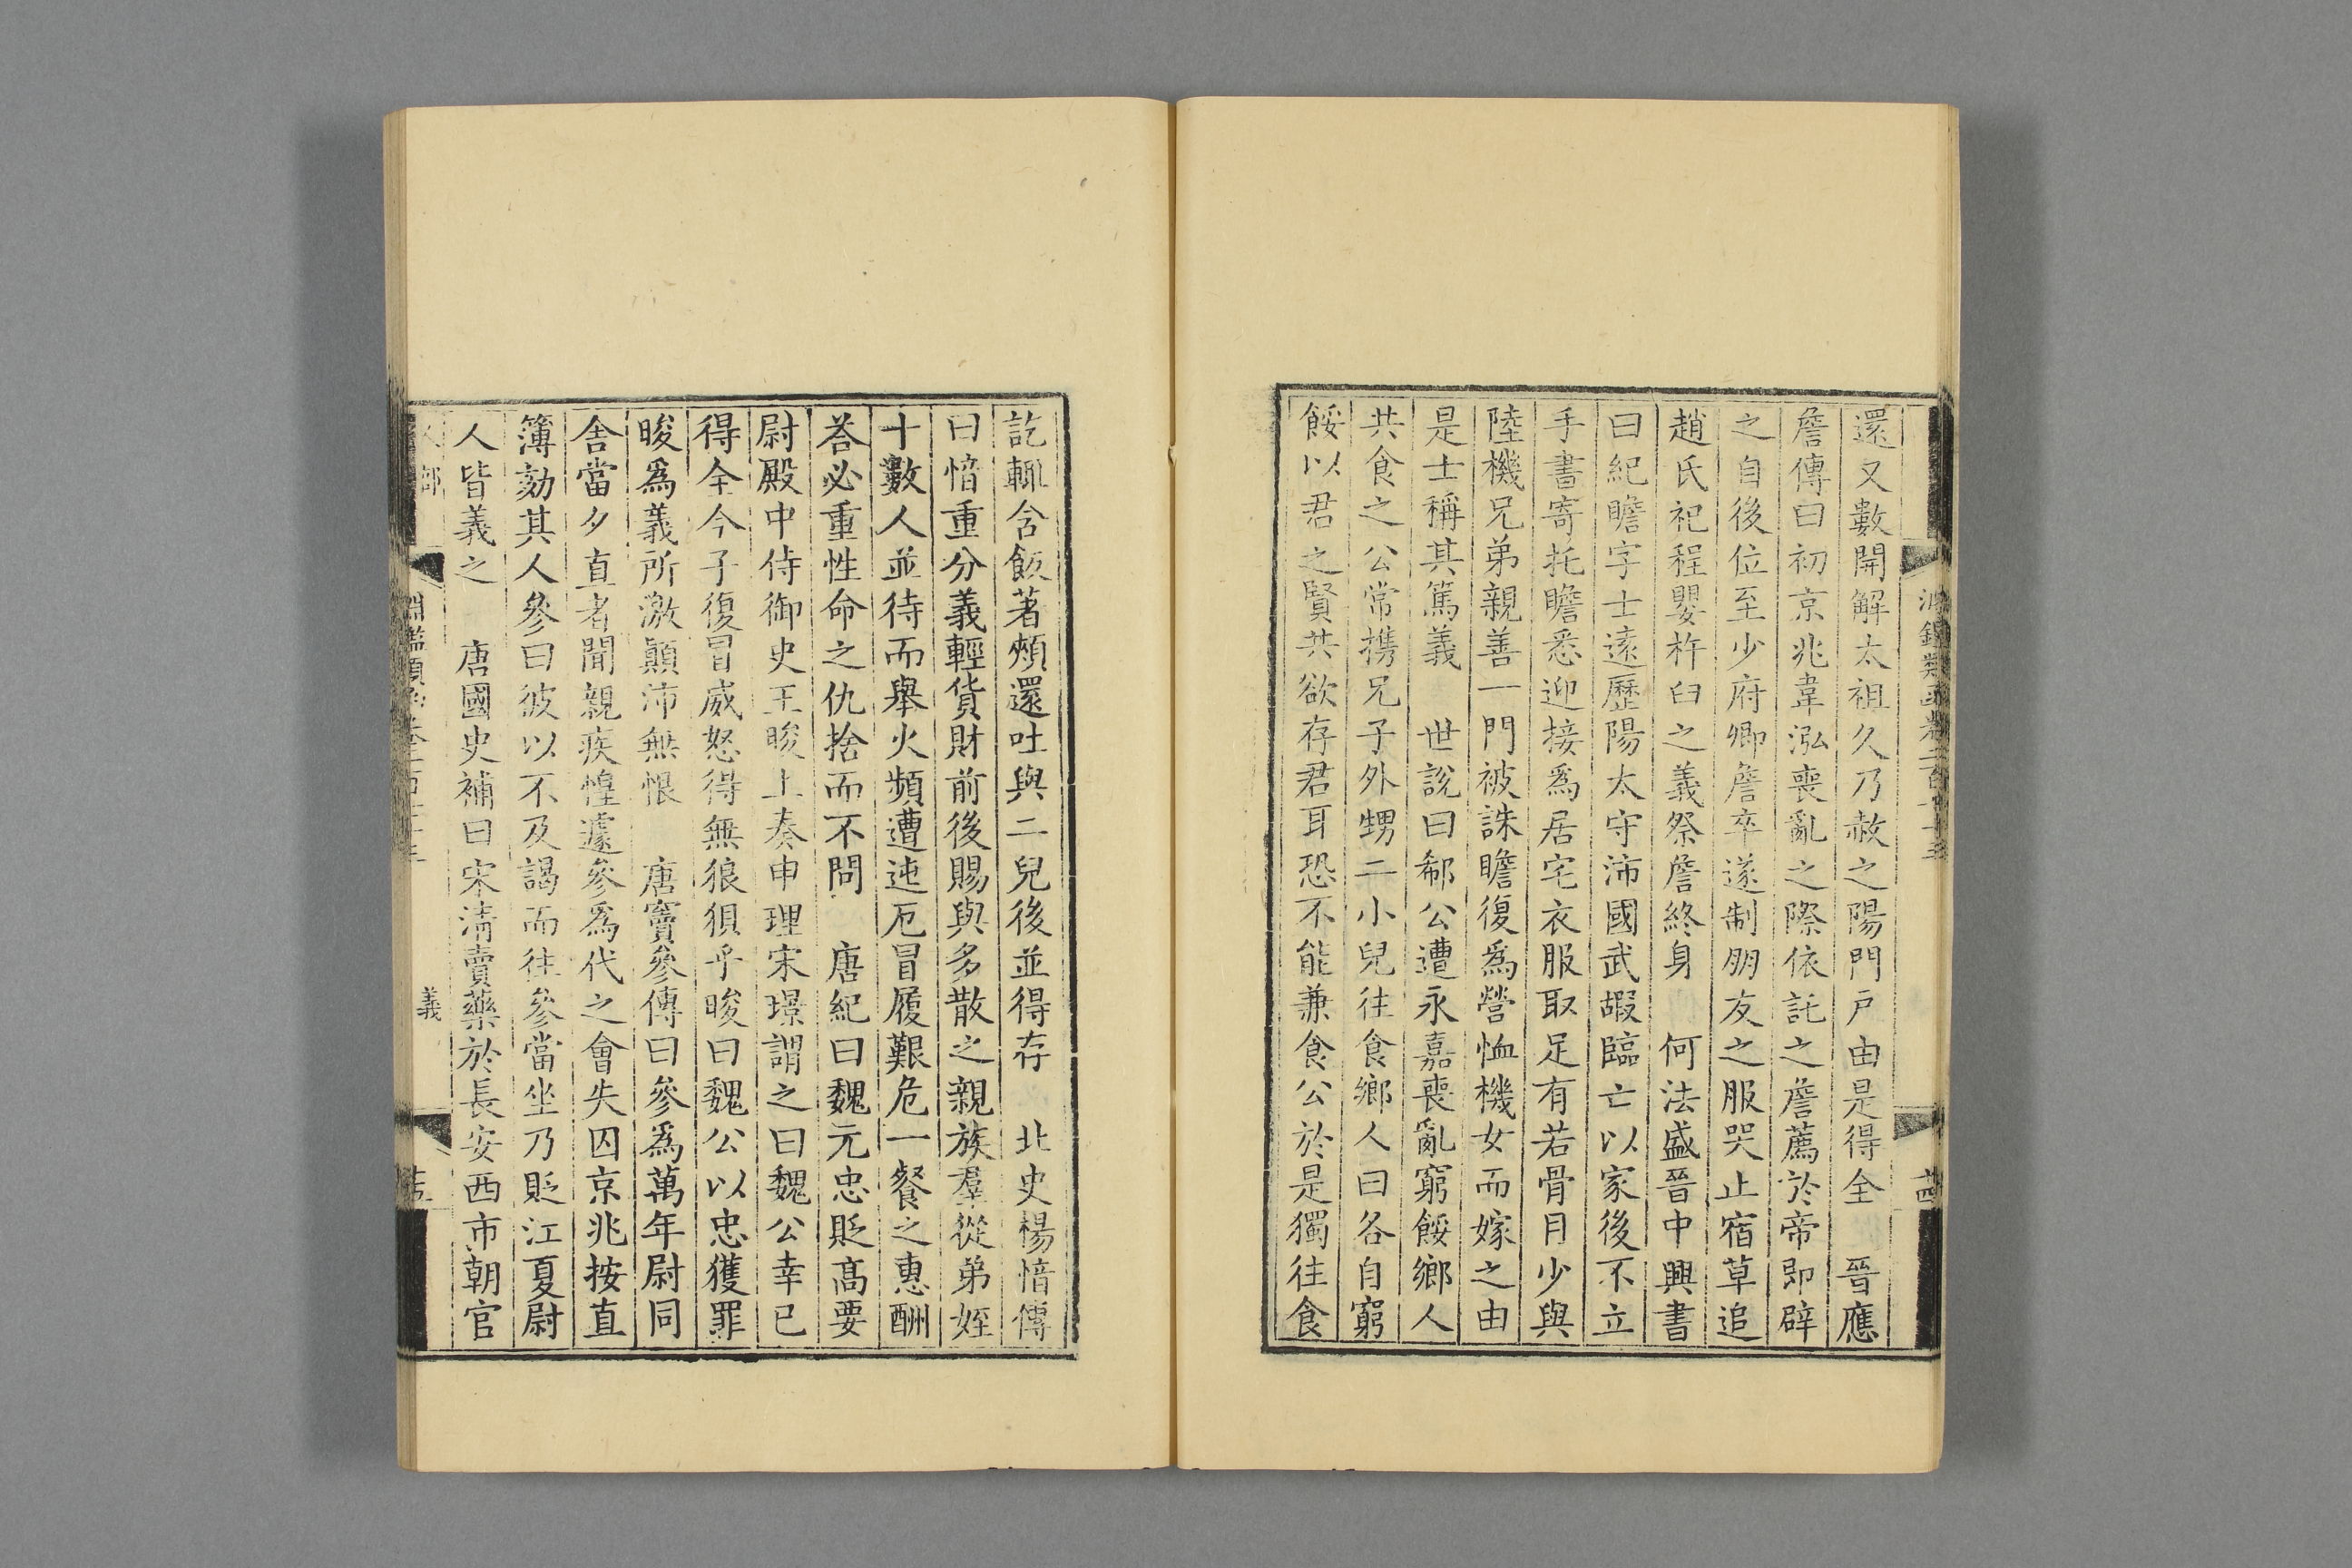 還又數開解太祖久乃赦之陽門戸由是得全　晉應
詹傳曰初京兆韋泓喪亂之際依託之詹薦於帝即辟
之自後位至少府卿詹卒遂制朋友之服哭止宿草追
趙氏祀程嬰杵臼之義祭詹終身　何法盛晉中興書
曰紀瞻字士遠歷陽太守沛國武嘏臨亡以家後不立
手書寄托瞻悉迎接爲居宅衣服取足有若骨月少與
陸機兄弟親善一門被誅瞻復爲營恤機女而嫁之由
是士稱其篤義　世說曰郗公遭永嘉喪亂窮餒鄉人
共食之公常携兄子外甥二小兒往食鄉人曰各自窮
餒以君之賢共欲存君耳恐不能兼食公於是獨往食
訖輒含飯著頰還吐與二兒後並得存　北史楊愔傳
曰愔重分義輕貨財前後賜與多散之親族羣從弟姪
十數人並待而舉火頻遭迍厄冒履艱危一餐之惠酬
荅必重性命之仇捨而不問　唐紀曰魏元忠貶高要
尉殿中侍御史王晙上奏申理宋璟謂之曰魏公幸已
得全今子復冒威怒得無狼狽乎晙曰魏公以忠獲罪
晙爲義所激顛沛無恨　唐竇參傳曰參爲萬年尉同
舍當夕直者聞親疾惶遽參爲代之會失囚京兆按直
簿劾其人參曰彼以不及謁而往參當坐乃貶江夏尉
人皆義之　唐國史補曰宋淸賣藥於長安西市朝官
義